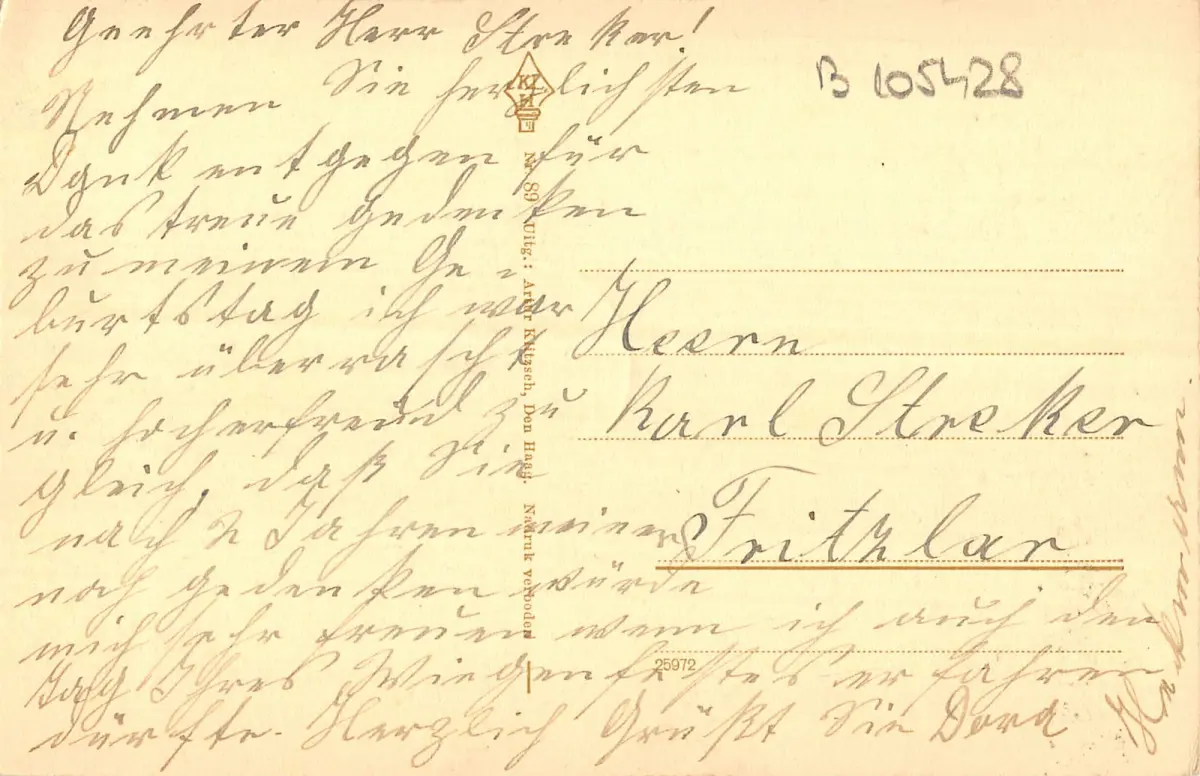 Geehrter Herr Streker!
Nehmen Sie herzlichsten
Dank entgegen für
das treue gedenken
zu meinem Ge-
burtstag ich war
sehr überrascht
u. hocherfreud zu
gleich, daß Sie
nach 2 Jahren meiner
noch gedenken würde
mich sehr freuen wenn ich auch den
Tag Ihres Wiegenfestes erfahren
dürfte. Herzlich Grüßt Sie Dora
B 105428
KI
Nr. 89 Uitg.: Artur Klitzsch, Den Haag. Nadruk verboden
Heern
Karl Streker
Fritzlar
25972